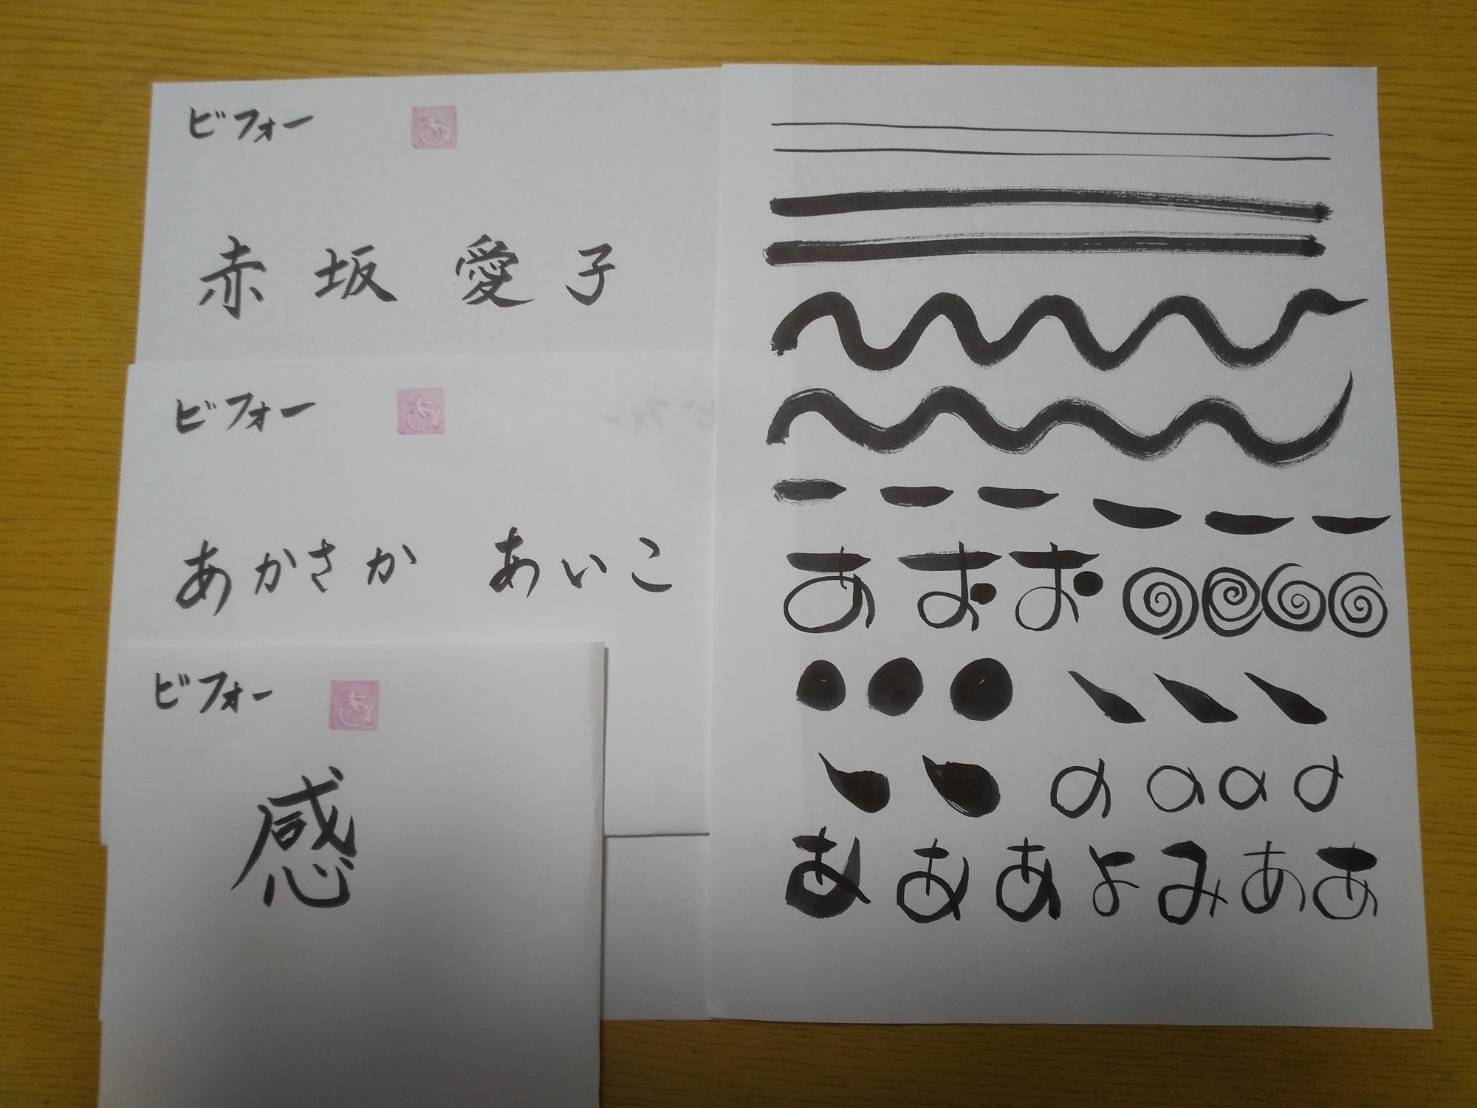 ビフォー あ
赤坂愛子
ビフォー あ
あかさか あいこ
ビフォー あ
感
あ お お
の α α の
お お あ よ み あ あ